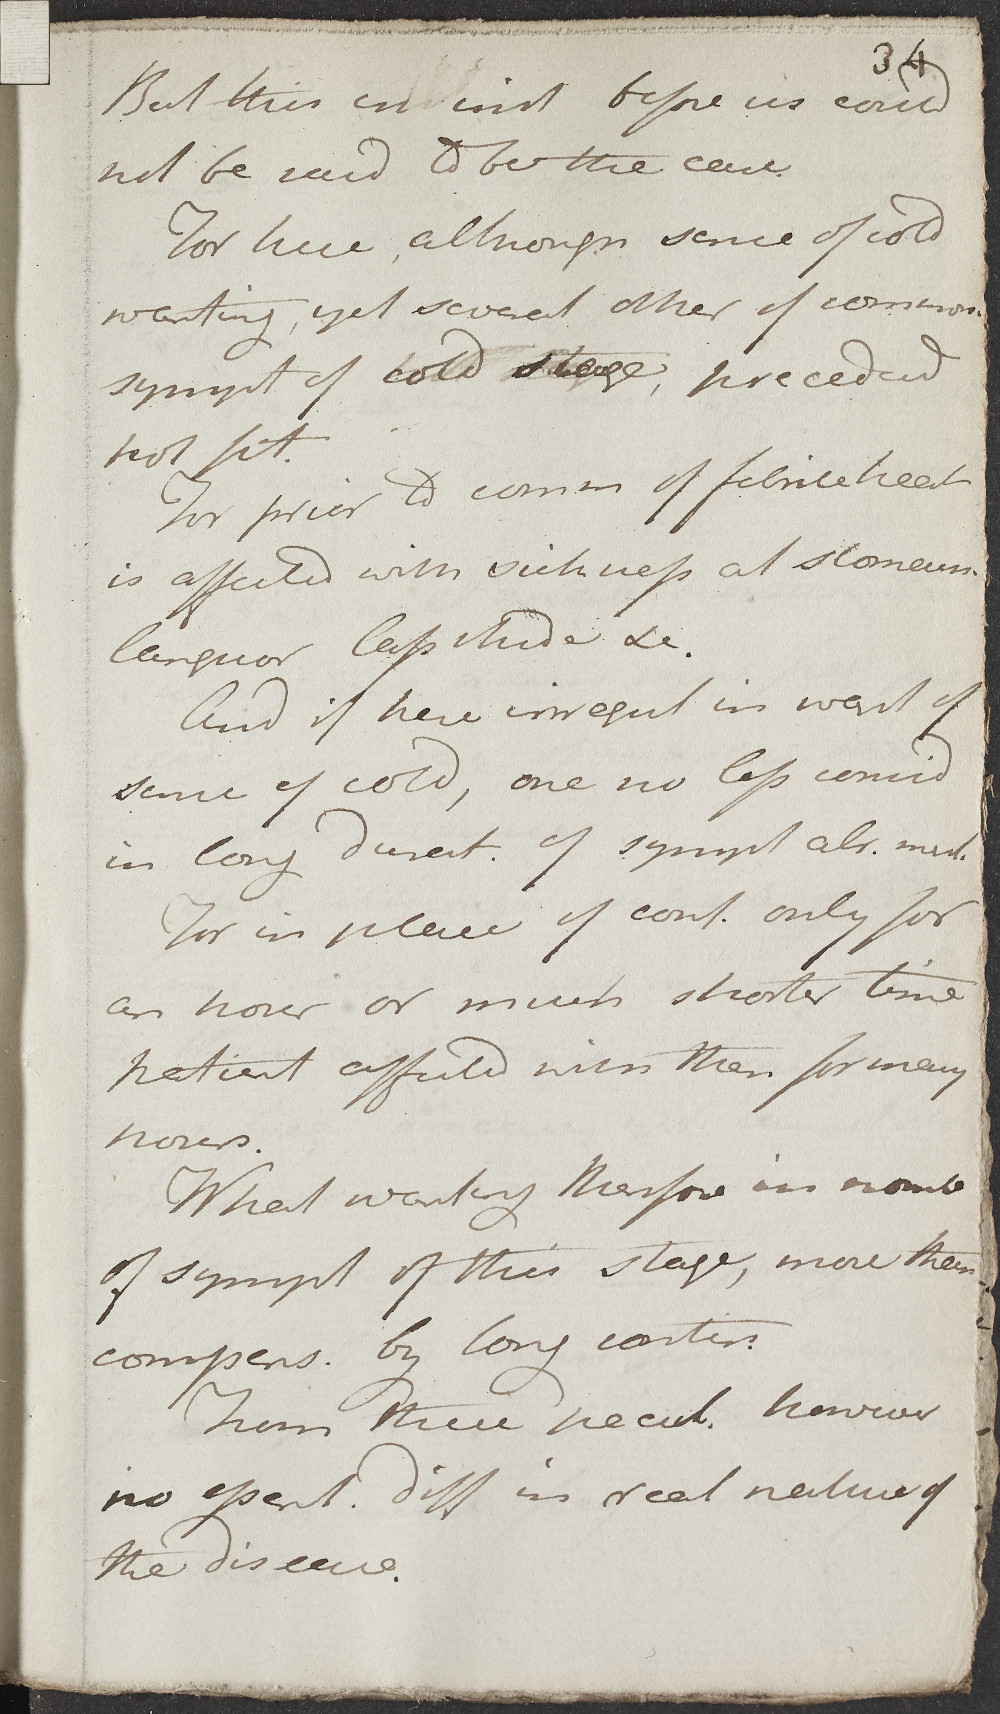 34
But this in inst before us could
not be said to be the case.
For here, although sense of cold
wanting, yet several other of common
sympt of cold stage, preceded
hot fit.
For prior to comm of febrile heat
is affected with sickness at stomach
languor lassitude &c.
And if here irregul in want of
sense of cold, one no less consid
in long durat. of sympt alr. ment.
For in place of cont. only for
an hour or much shorter time
patient affected with them for many
hours.
What wanting therefore in numb
of sympt of this stage, more than
compens. by long contin.
From these pecul. however
no essent. diff in real nature of
the disease.